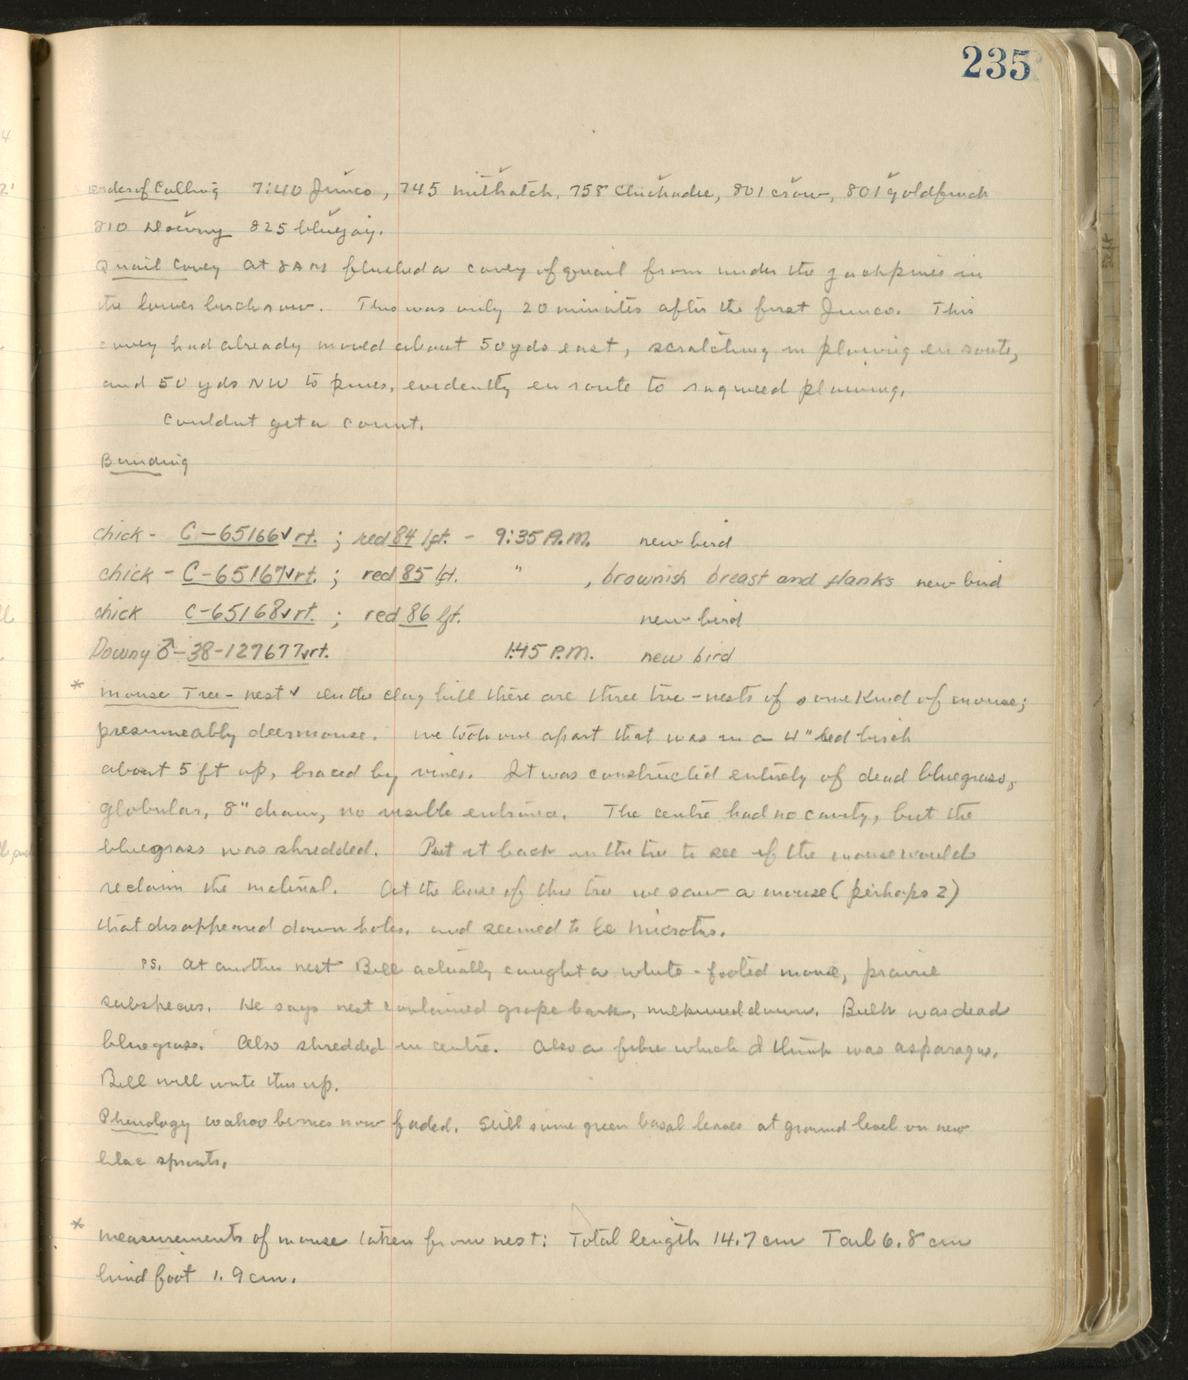 235
Order of Calling 7:40 Junco, 745 nuthatch, 758 Chickadee, 801 crow, 801 goldfinch
810 Downy 825 bluejay.
Quail Covey At 8AM flushed a covey of quail from under the jackpines in
the lower birch row. This was only 20 minutes after the first Junco. This
covey had already moved about 50 yds east, scratching in plowing en route,
and 50 yds NW to pines, evidently en route to ragweed plowing.
Couldnt get a count.
Banding
chick - C-65166✓ rt. ; red 84 lft. - 9:35 A.M. new bird
chick - C-65167✓ rt. ; red 85 lft. " , brownish breast and flanks new bird
chick C-65168✓ rt. ; red 86 lft. new bird
Downy ♂ - 38-127677✓ rt. 1:45 P.M. new bird
* Mouse Tree-nest ✓ On the clay hill there are three tree-nests of some kind of mouse;
presumeably deermouse. We took one apart that was in a 4" bed birch
about 5 ft up, braced by vines. It was constructed entirely of dead bluegrass,
globular, 8" diam, no visible entrance. The centre had no cavity, but the
bluegrass was shredded. Put it back in the tree to see if the mouse would
reclaim the material. At the base of this tree we saw a mouse (perhaps 2)
that disappeared down holes, and seemed to be Microtus.
PS. At another nest Bill actually caught a white-footed mouse, prairie
subspecies. He says nest contained grape bark, milkweed down. Bulk was dead
bluegrass. Also shredded in centre. Also a fibre which I think was asparagus.
Bill will write this up.
Phenology Wahoo berries now faded. Still some green basal leaves at ground level on new
lilac sprouts.
* Measurements of mouse taken from nest: Total length 14.7 cm Tail 6.8 cm
hind foot 1.9 cm.